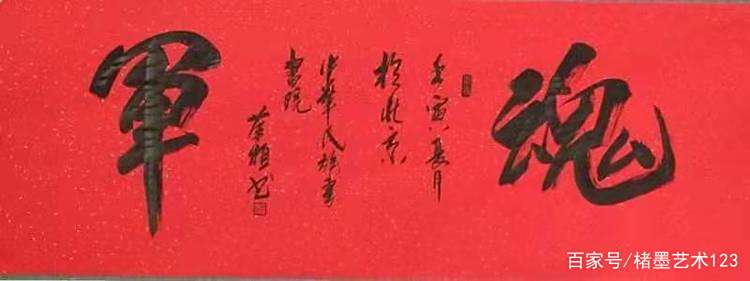 軍魂
壬寅夏月
於北京
中華民族書
畫院
百家号/楮墨艺术123